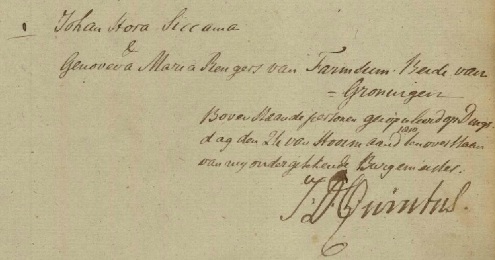 Johan Hora Siccama
&
Genoveva Maria Rengers van Farmsum. Beide van
= Groningen
Boven staande persoonen gecopuleerd op Dings
dag den 24 van Hooimaand 1810, ten overstaan
van my ondergetekende Burgemeester.
J J Quintus.